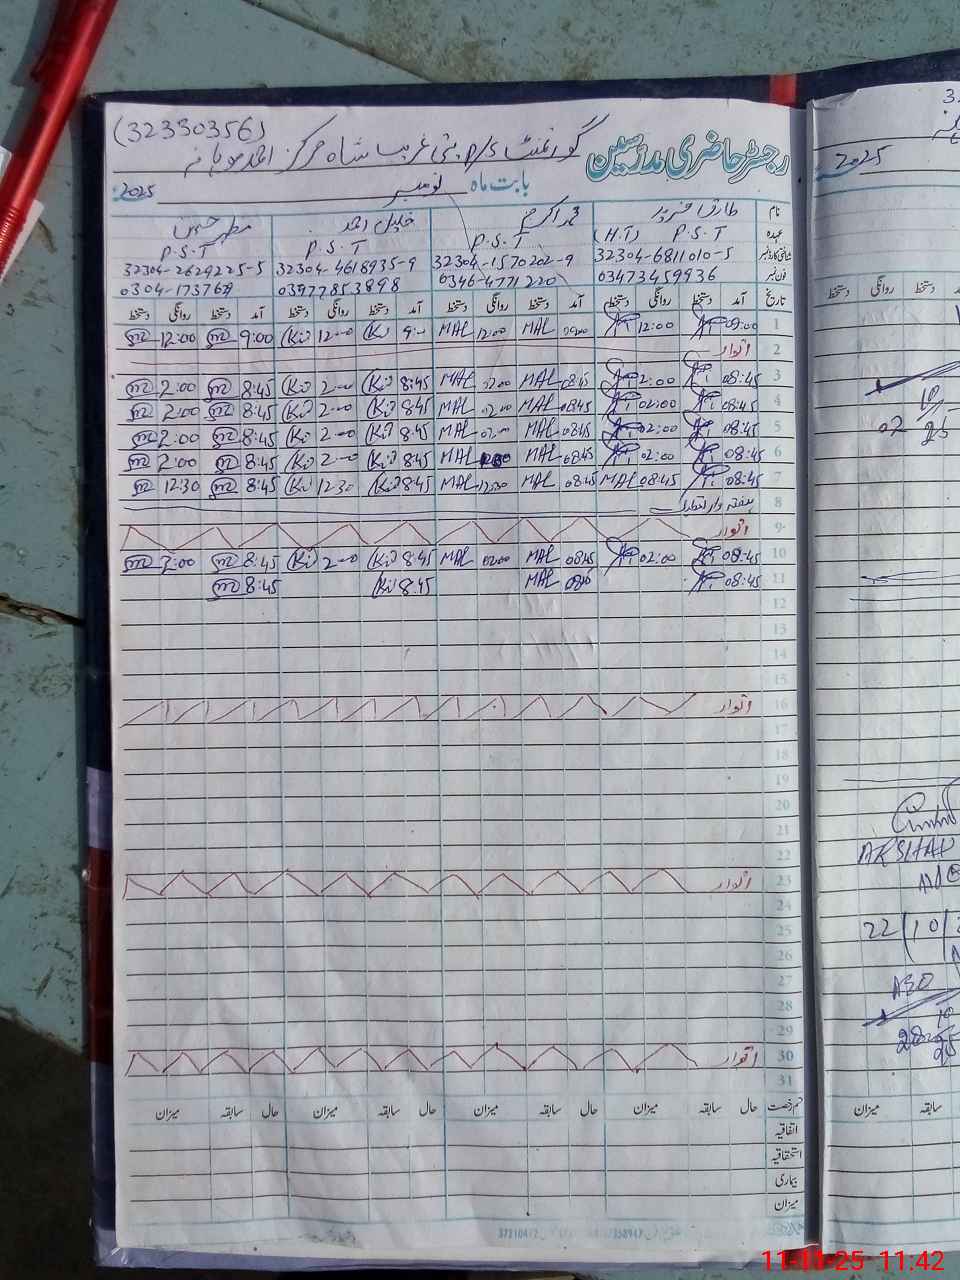 (32330356)
رجسٹر حاضری مدرسین
گورنمنٹ P/S بستی غریب شاہ مرکز احمد موہانہ
بابت ماہ نومبر 2025
نام
طارق فیروز
محمد اکرم
خلیل احمد
مظہر حسین
عہدہ
P.S.T (H.T)
P.S.T
P.S.T
P.S.T
شناختی کارڈ نمبر
32304-6811010-5
32304-1570202-9
32304-4618935-9
32304-2629225-5
فون نمبر
03473459936
0346-4771220
03977853898
0304-173767
تاریخ آمد دستخط روانگی دستخط آمد دستخط روانگی دستخط آمد دستخط روانگی دستخط آمد دستخط روانگی دستخط
1 09:00 12:00 09:00 MAL 12:00 MAL 9:00 12:00 9:00 12:00
2 اتوار
3 08:45 2:00 08:45 MAL 02:00 MAL 8:45 2:00 8:45 2:00
4 08:45 02:00 08:45 MAL 02:00 MAL 8:45 2:00 8:45 2:00
5 08:45 02:00 08:45 MAL 02:00 MAL 8:45 2:00 8:45 2:00
6 08:45 02:00 08:45 MAL MAL 8:45 2:00 8:45 2:00
7 08:45 08:45 MAL 08:45 MAL 12:30 MAL 8:45 12:30 8:45 12:30
8 ہفتہ وار تعطیل
9 اتوار
10 08:45 02:00 08:45 MAL 02:00 MAL 8:45 2:00 8:45 2:00
11 08:45 MAL 8:45 8:45
12
13
14
15
16 اتوار
17
18
19
20
21
22
23 اتوار
24
25
26
27
28
29
30 اتوار
31
قسم رخصت حال سابقہ میزان حال سابقہ میزان حال سابقہ میزان حال سابقہ میزان
اتفاقیہ
استحقاقیہ
بیماری
میزان
2025
روانگی دستخط
دستخط
10
02 25
22/10/2
AEO
10
28 25
میزان سابقہ
11-11-25 11:42